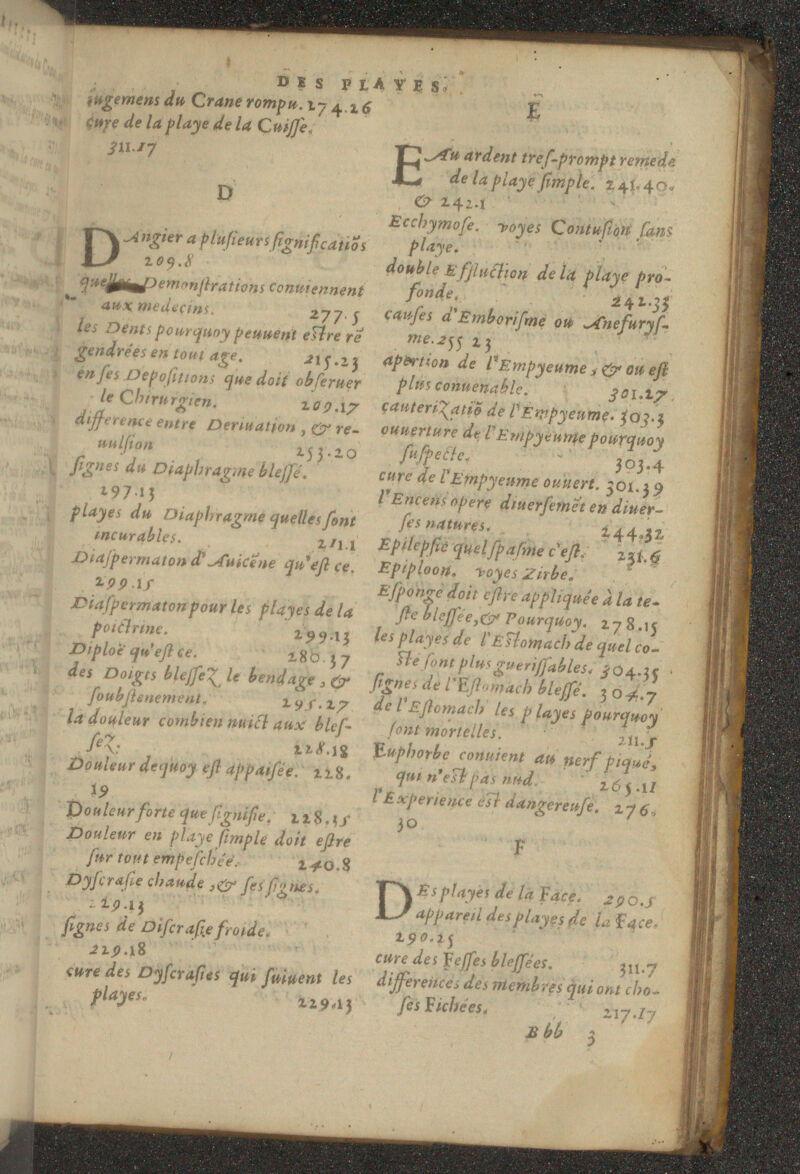 DES PLAYES.
iugemens du Crane rompu. 274.26
cure de la playe de la Cuisse.
311.17
D
DAngier a plusieurs significatiõs
209.8
Demonstrations conuiennent
aux medecins. 277.5
les Dents pourquoy peuuent estre rë
gendrées en tout age. 215.23
en ses Depositions que doit obseruer
le Chirurgien. 209.17
difference entre Deriuation, & re-
uulsion 253.20
signes du Diaphragme blessé.
297.13
playes du Diaphragme quelles sont
incurables. 211.1
Diaspermaton d'Auicëne qu'est ce.
299.15
Diaspermaton pour les playes de la
poictrine. 299.13
Diploë qu'est ce. 280.37
des Doigts blessez le bendage, &
soubstenement. 295.27
la douleur combien nuict aux bles-
sez. 228.18
Douleur dequoy est appaisée. 228.
19
Douleur forte que signifie. 228.35
Douleur en playe simple doit estre
sur tout empeschée. 240.8
Dyscrasie chaude, & ses signes.
229.13
signes de Discrasie froide.
229.18
cure des Dyscrasies qui suiuent les
playes. 229.13
E
EAu ardent tres-prompt remede
de la playe simple. 241.40.
& 242.1
Ecchymose. voyes Contusion sans
playe.
double Effluction de la playe pro-
fonde. 242.33
causes d'Emborisme ou Anefurys-
me. 255 23
apertion de l'Empyeume, & ou est
plus conuenable. 301.27
cauterizatiõ de l'Empyeume. 303.3
ouuerture de l'Empyeume pourquoy
suspecte. 303.4
cure de l'Empyeume ouuert. 301.39
l'Encens opere diuersemët en diuer-
ses natures. 244.32
Epilepsie quel spasme c'est. 231.6
Epiploon. voyes Zirbe.
Esponge doit estre appliquée à la te-
ste blessée, & Pourquoy. 278.15
les playes de l'Estomach de quel co-
ste sont plus guerissables. 304.35
signes de l'Estomach blessé. 304.7
de l'Estomach les playes pourquoy
sont mortelles. 211.5
Euphorbe conuient au nerf piqué,
qui n'est pas nud. 265.11
l'Experience est dangereuse. 276.
30
F
DEs playes de la Face. 290.5
appareil des playes de la Face.
290.25
cure des Fesses blessées. 311.7
differences des membres qui ont cho-
ses Fichées. 217.17
Bbb 3